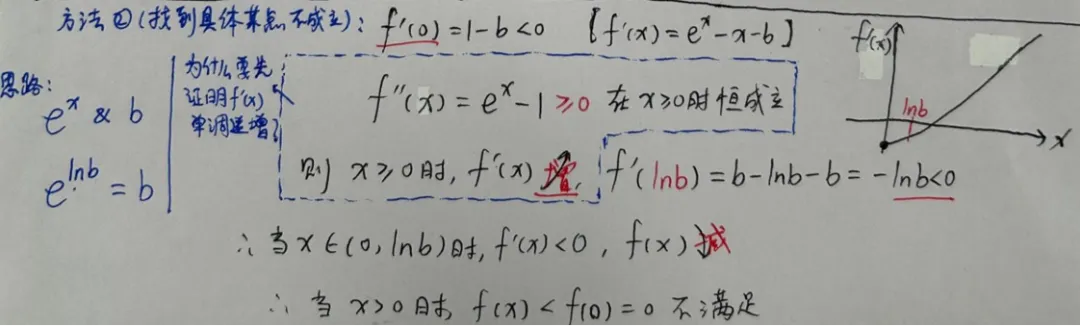 方法②(找到具体某点不成立): f'(0)=1-b<0 【f'(x)=e^x-x-b】
思路:
e^x & b
e^{lnb}=b
为什么要先
证明f'(x)
单调递增?
f''(x)=e^x-1≥0 在x≥0时恒成立
则 x≥0时, f'(x)增, f'(lnb)=b-lnb-b=-lnb<0
∴当x∈(0,lnb)时, f'(x)<0, f(x)减
∴当x>0时, f(x)<f(0)=0 不满足
f'(x)
lnb
x